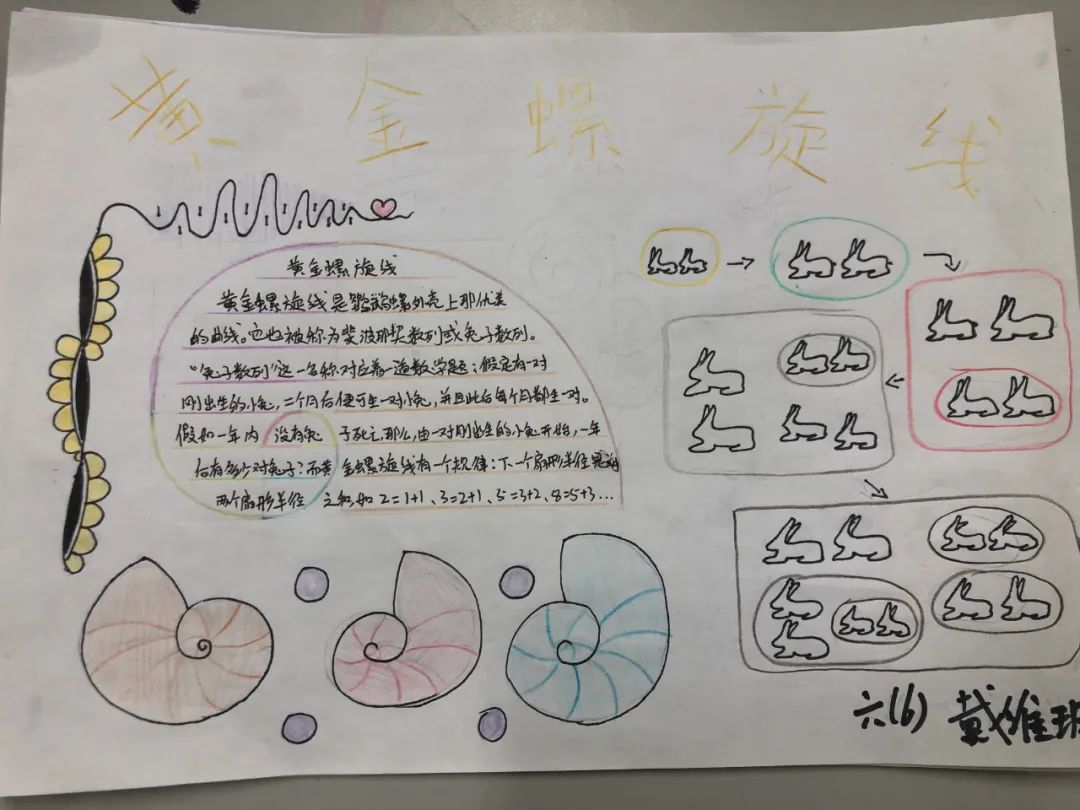 黄金螺旋线
黄金螺旋线
黄金螺旋线是鹦鹉螺外壳上那优美
的曲线。它也被称为斐波那契数列或兔子数列。
“兔子数列”这一名称对应着一道数学题：假定有一对
刚出生的小兔，二个月后便可生一对小兔，并且此后每个月都生一对。
假如一年内没有兔子死亡，那么，由一对刚出生的小兔开始，一年
后有多少对兔子？而黄金螺旋线有一个规律：下一个扇形半径是前
两个扇形半径之和如2=1+1、3=2+1、5=3+2、8=5+3...
六(6) 戴维